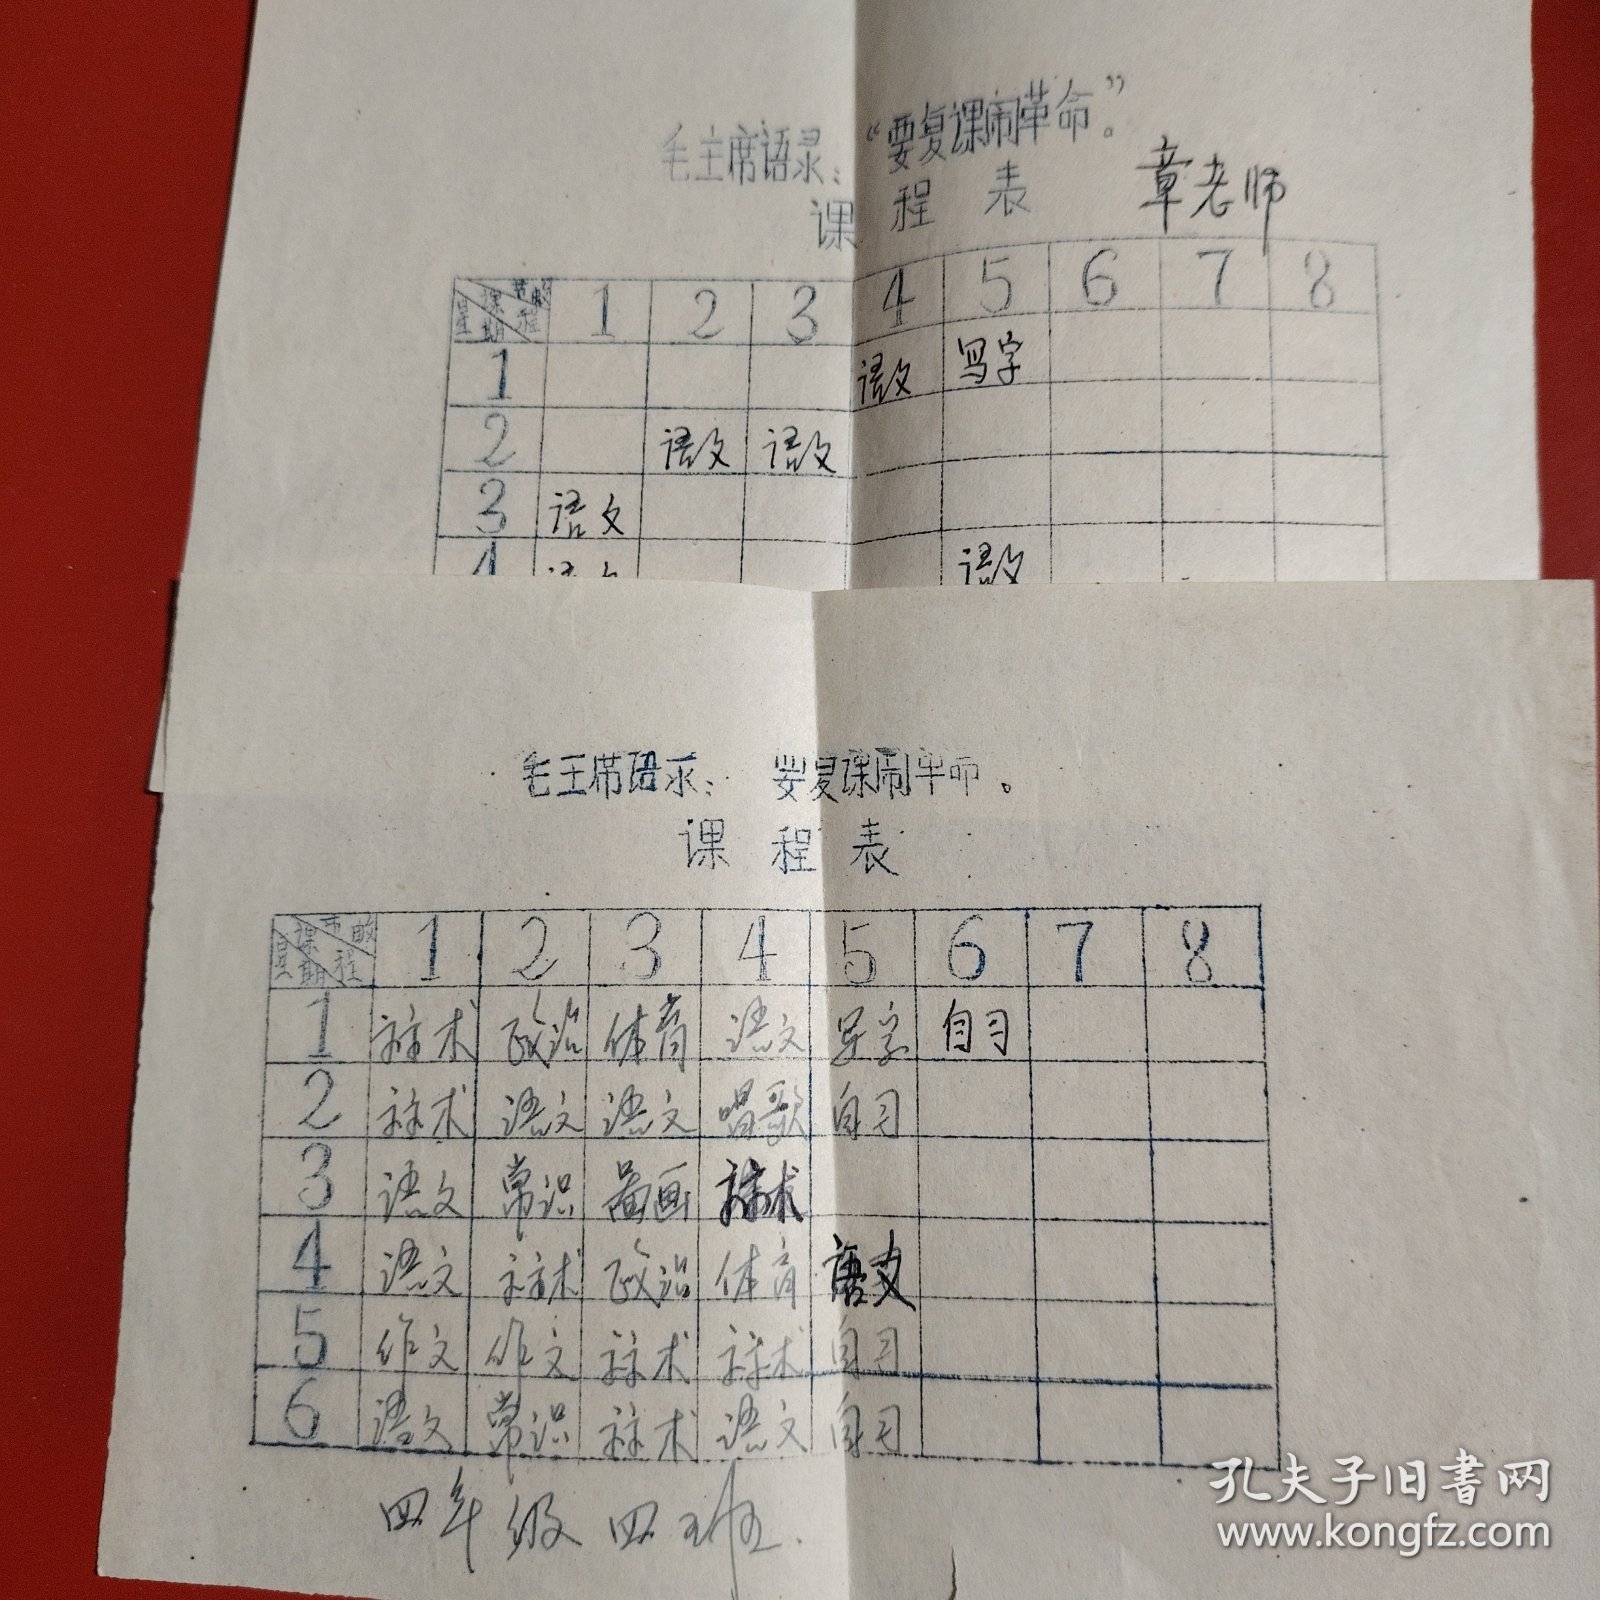 毛主席语录：“要复课闹革命。”
课程表 章老师
节数 课程 星期 1 2 3 4 5 6 7 8
1 语文 写字
2 语文 语文
3 语文
4 语文 语文
毛主席语录：要复课闹革命。
课程表
节数 课程 星期 1 2 3 4 5 6 7 8
1 祘术 政治 体育 语文 写字 自习
2 祘术 语文 语文 唱歌 自习
3 语文 常识 图画 祘术
4 语文 祘术 政治 体育 语文
5 作文 作文 祘术 祘术 自习
6 语文 常识 祘术 语文 自习
四年级四班.
孔夫子旧书网
www.kongfz.com